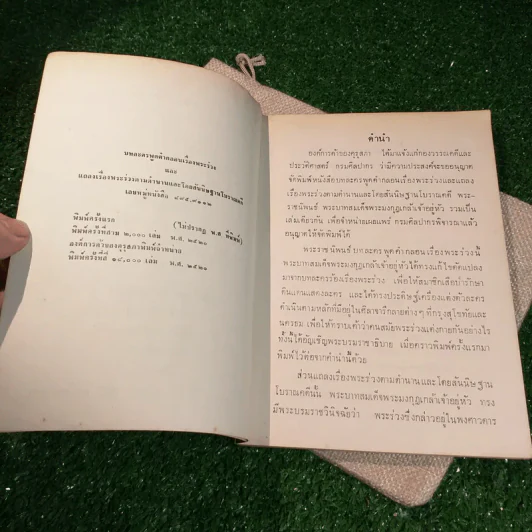 บทละครพูดคำกลอนเรื่องพระร่วง
และ
แถลงเรื่องพระร่วงตามตำนานและโดยสันนิษฐานโบราณคดี
เลขหมู่หนังสือ
พิมพ์ครั้งแรก (ไม่ปรากฏ พ.ศ. ที่พิมพ์)
พิมพ์ครั้งที่สาม ๒,๐๐๐ เล่ม พ.ศ.
องค์การค้าของคุรุสภาพิมพ์จำหน่าย
พิมพ์ครั้งที่ เล่ม พ.ศ.
คำนำ
องค์การค้าของคุรุสภา ได้มาแจ้งแก่กองวรรณคดีและ
ประวัติศาสตร์ กรมศิลปากร ว่ามีความประสงค์จะขออนุญาต
จัดพิมพ์หนังสือบทละครพูดคำกลอนเรื่องพระร่วงและแถลง
เรื่องพระร่วงตามตำนานและโดยสันนิษฐานโบราณคดี พระ-
ราชนิพนธ์ พระบาทสมเด็จพระมงกุฎเกล้าเจ้าอยู่หัว รวมเป็น
เล่มเดียวกัน เพื่อจำหน่ายเผยแพร่ กรมศิลปากรพิจารณาแล้ว
อนุญาตให้จัดพิมพ์ได้
พระราชนิพนธ์ บทละครพูดคำกลอนเรื่องพระร่วงนี้
พระบาทสมเด็จพระมงกุฎเกล้าเจ้าอยู่หัวได้ทรงแก้ไขดัดแปลง
มาจากบทละครร้องเรื่องพระร่วง เพื่อให้สมาชิกเสือป่ารักษา
ดินแดนแสดงละคร และได้ทรงประดิษฐ์เครื่องแต่งตัวละคร
ดำเนินตามหลักที่มีอยู่ในศิลาจารึกลายต่างๆ ที่กรุงสุโขทัยและ
นครธม เพื่อให้ทราบเค้าว่าคนสมัยพระร่วงแต่งกายกันอย่างไร
ทั้งนี้ได้อัญเชิญพระบรมราชาธิบาย เมื่อคราวพิมพ์ครั้งแรกมา
พิมพ์ไว้ต่อจากคำนำนี้ด้วย
ส่วนแถลงเรื่องพระร่วงตามตำนานและโดยสันนิษฐาน
โบราณคดีนั้น พระบาทสมเด็จพระมงกุฎเกล้าเจ้าอยู่หัว ทรง
มีพระบรมราชวินิจฉัยว่า พระร่วงซึ่งกล่าวอยู่ในพงศาวดาร